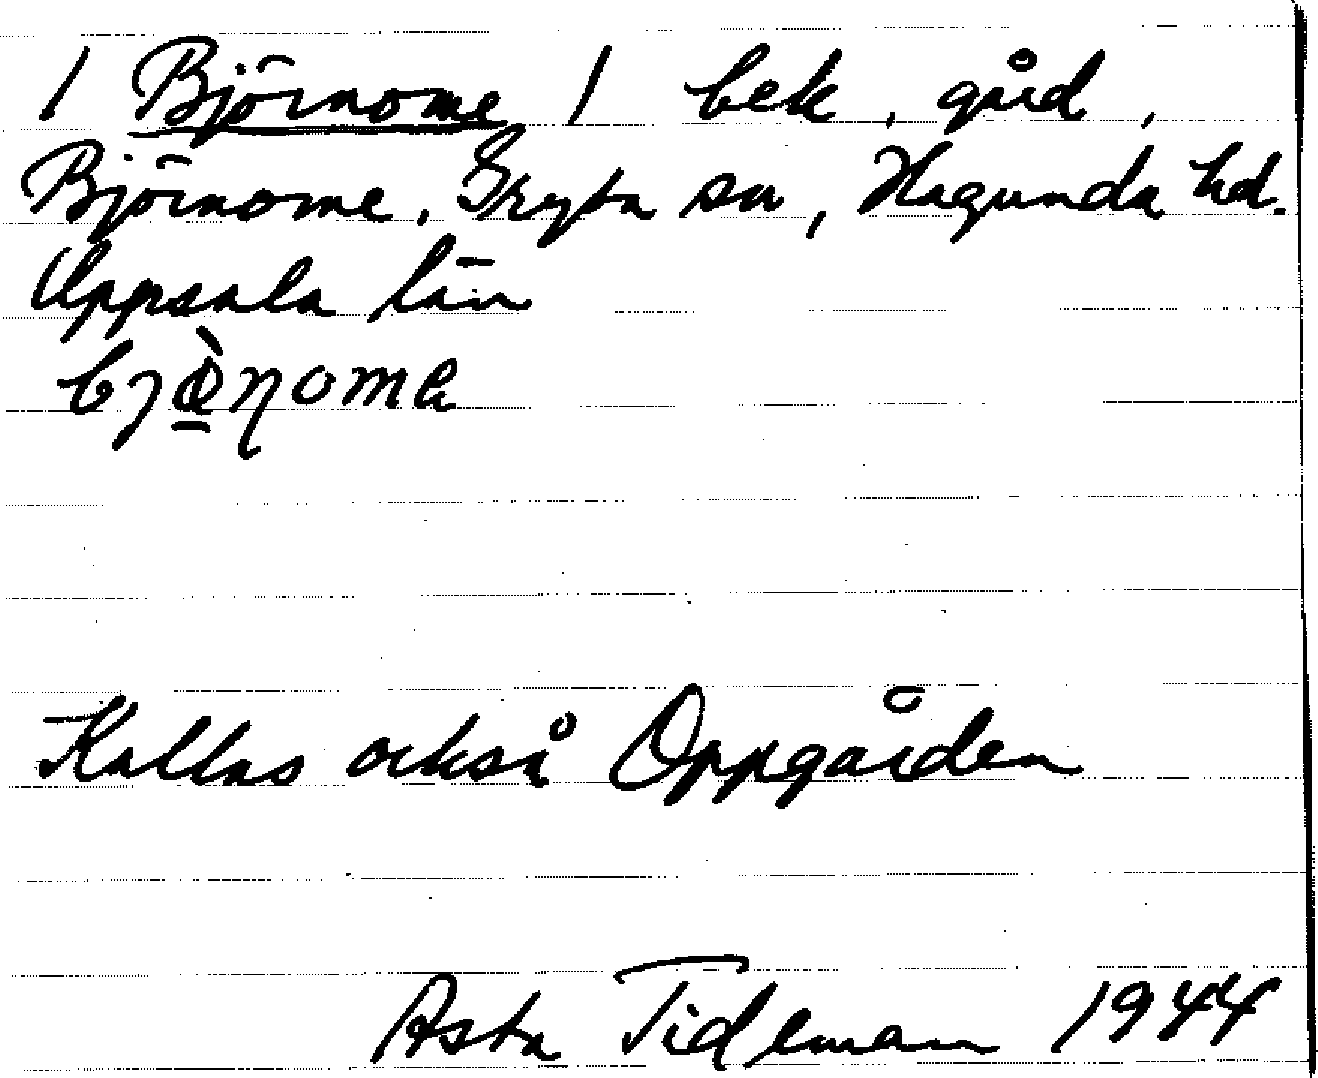 / Björnome / bek. gård,
Björnome, Gryta sn, Hagunda hd.
Uppsala län
Kallas också Oppgården
Asta Tideman 1944